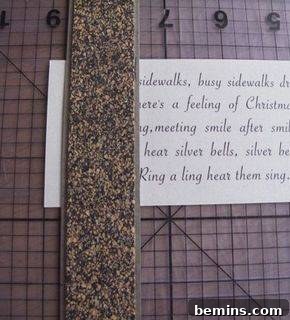 sidewalks, busy sidewalks
here's a feeling of Christma
ng, meeting smile after smil
hear silver bells, silver be
Ring a ling hear them sing.
bemins.com